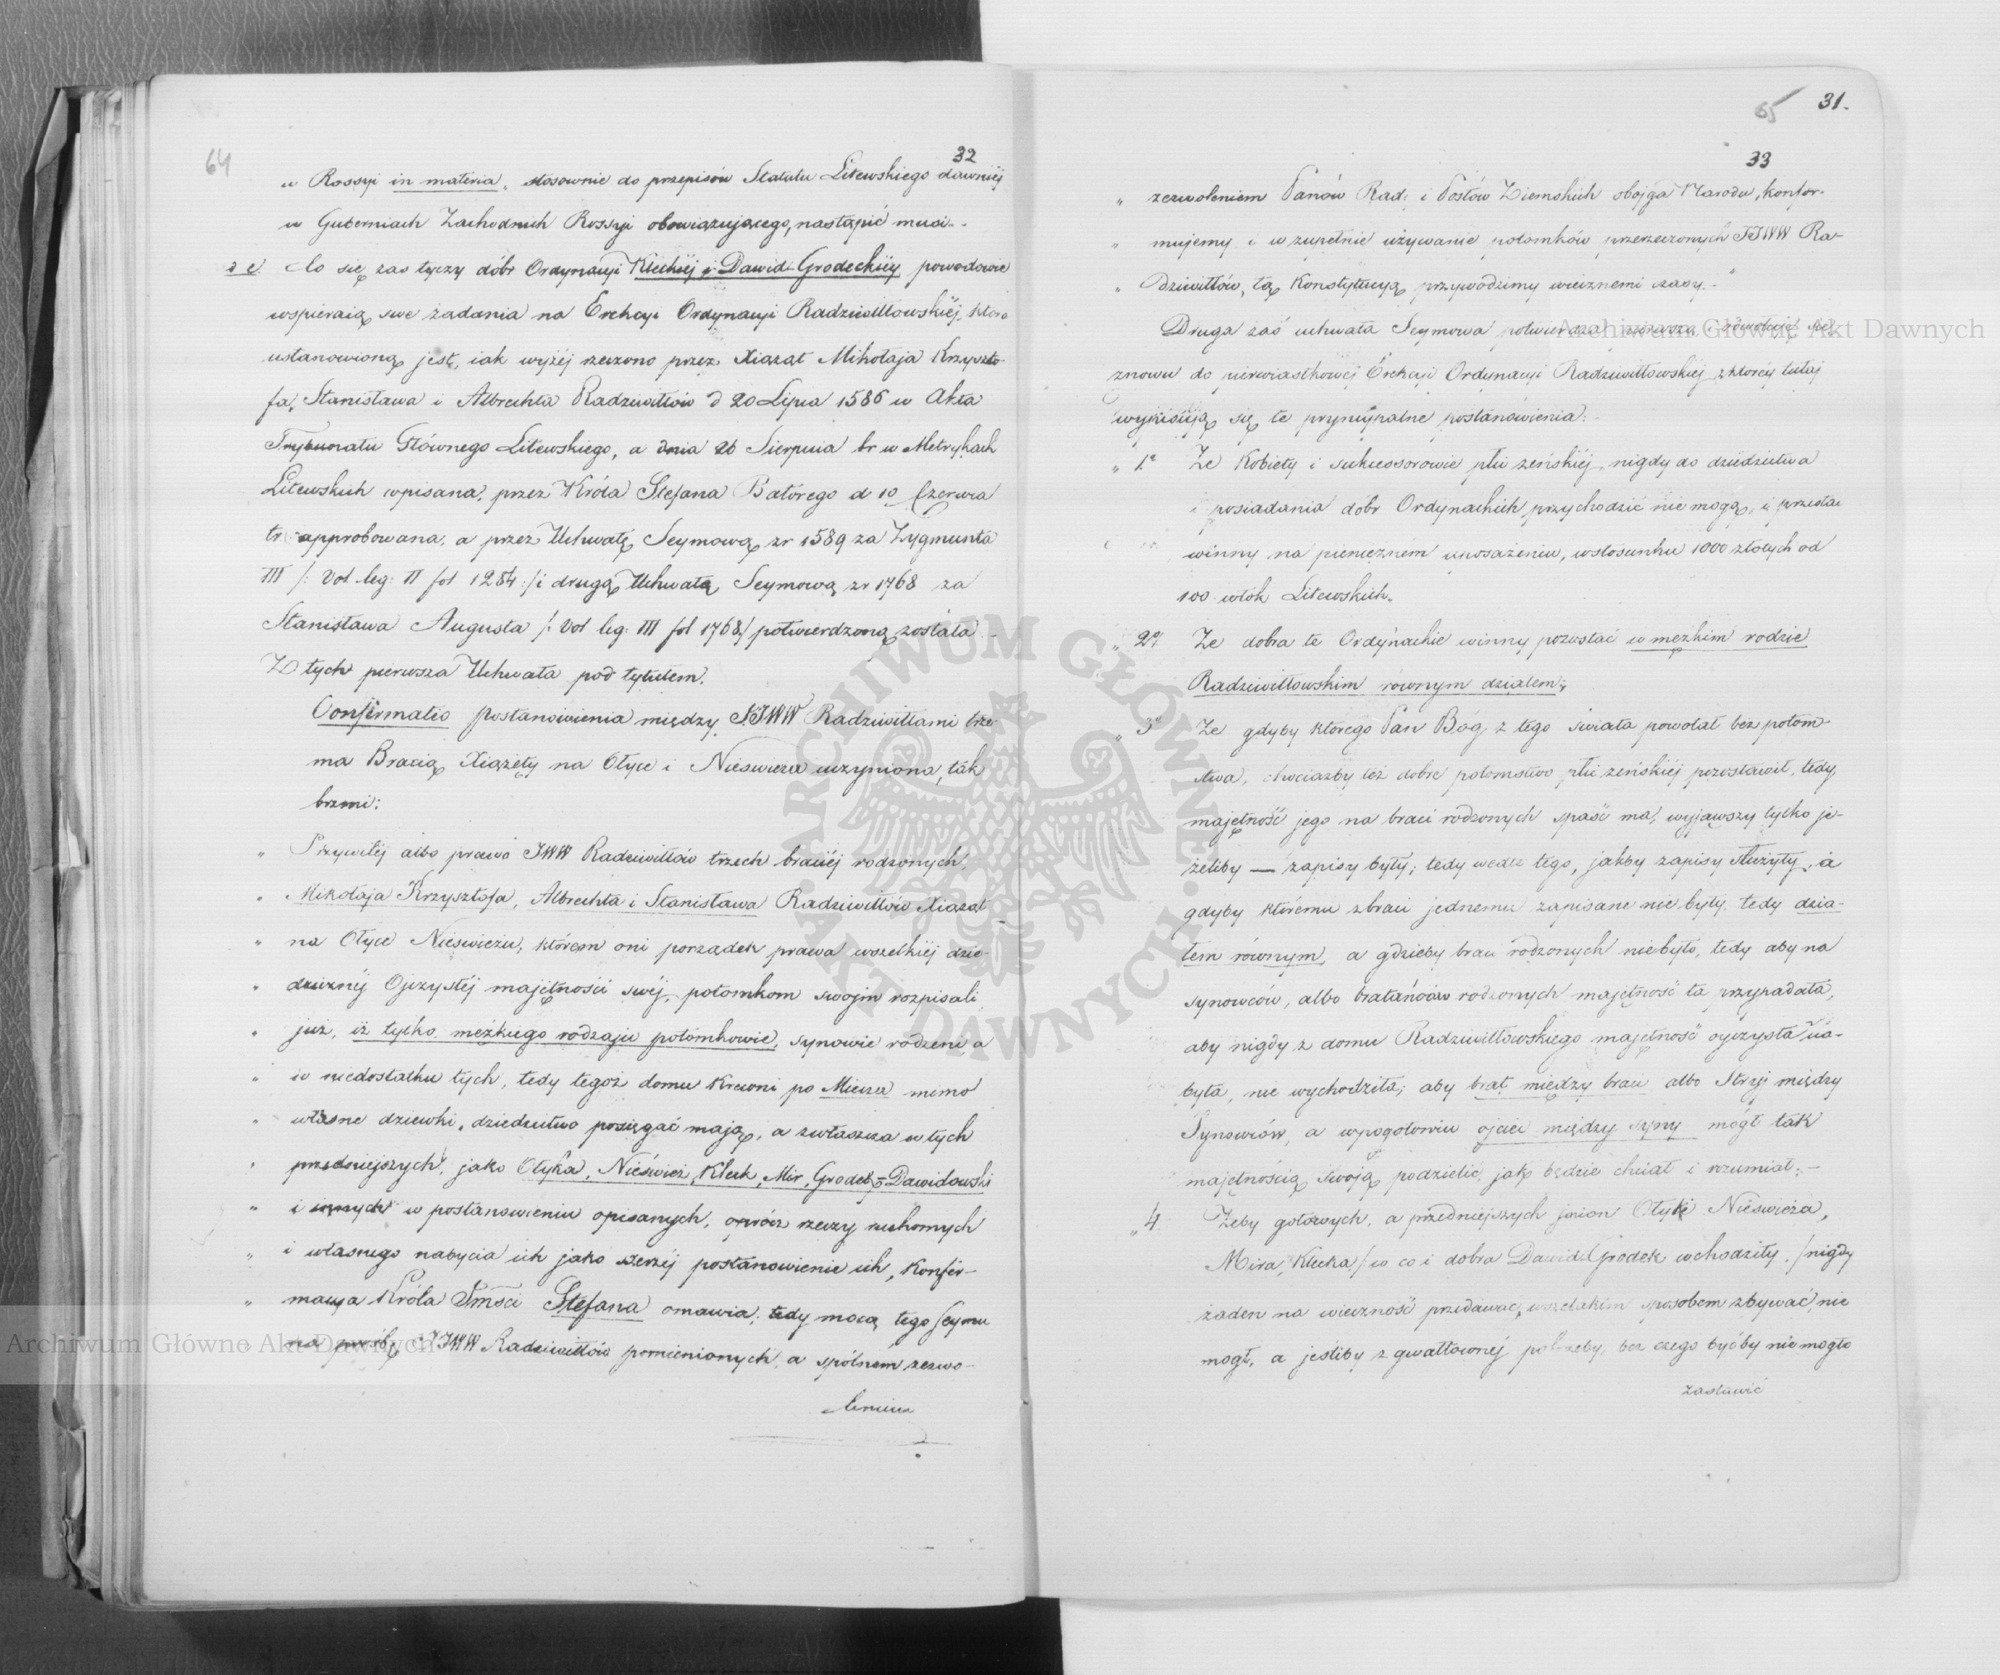 64
32
w Rossyi in materia, stosownie do przepisów Statutu Litewskiego dawniéj
w Guberniach Zachodnich Rossyi obowiązującego, nastąpić musi. -
Co się zas tyczy dóbr Ordynacyi Kleckiéj i Dawid-Grodeckiéj powodowie
wspieraią swe żadania na Erekcyi Ordynacyi Radziwiłłowskiéj, która
ustanowioną jest, iak wyżéj rzeczono przez Xiążąt Mikołaja Krzyszto-
fa, Stanisława i Albrechta Radziwiłłów d 20 Lipca 1586 w Akta
Trybunału Głównego Litewskiego, a dnia 26 Sierpnia br w Metrykach
Litewskich wpisana, przez Króla Stefana Batorego d 10 Czerwca
tr approbowana, a przez Uchwałę Seymową zr 1589 za Zygmunta
III /: Vol. leg: II fol 1284:/ i drugą Uchwałą Seymową zr 1768 za
Stanisława Augusta /: Vol leg: III fol 1768/ potwierdzoną została -
Z tych pierwsza Uchwała pod tytułem.
Confirmatio postanowienia między JJWW Radziwiłłami trze-
ma Bracią Xiążęty na Ołyce i Nieswieza uczyniona, tak
brzmi:
„ Przywiléj albo prawo JWW Radziwiłłów trzech braciéj rodzonych,
„ Mikołaja Krzysztofa, Albrechta i Stanisława Radziwiłłów Xiążąt
„ na Ołyce Nieswieżu, którem oni porządek prawa wszelkiéj dzie-
„ dzicznéj Ojczystéj majętności swéj, potomkom swojim rozpisali,
„ już, iż tylko męzkiego rodzaju potomkowie, synowie rodzeni, a
„ w niedostatku tych, tedy tegoż domu Krewni po Mieczu mimo
„ własne dziewki, dziedzictwo posięgać mają, a zwłaszcza w tych
„ przedniejszych, jako Ołyka, Nieświeź, Kleck, Mir, Grodek-Dawidowski
„ i innych w postanowieniu opisanych, oprócz rzeczy ruchomych
„ i własnego nabycia ich jako szerzéj postanowienie ich, Konfir-
„ macya Króla Jmści Stefana omawia; tedy mocą tego Seymu
„ na proźbę JJWW Radziwiłłów pomienionych, a spólnem zezwo-
leniem
65
31.
33
„ zezwoleniem Panów Rad: i Posłów Ziemskich obojga Narodu, konfor-
„ mujemy i w zupełnie używanie potomków przerzeczonych JJWW Ra-
„ dziwiłłów, tą Konstytucyą przywodzimy wiecznemi czasy. -
Druga zaś uchwała Seymowa potwierdza
znowu do pierwiastkowéj Erekcyi Ordynacyi Radziwiłłowskiéj, z któréj tutaj
wypisują się te pryncypalne postanowienia: -
„ 1o Ze Kobiety i sukcessorowie płci żeńskiéj, nigdy do dziedzictwa
i posiadania dóbr Ordynackich przychodzić nie mogą, i przestać
winny na pieniężném uposażeniu, w stosunku 1000 złotych od
100 włók Litewskich.
„ 2o Ze dobra te Ordynackie winny pozostać w mezkim rodzie
Radziwiłłowskim równym działem;
„ 3o Ze gdyby którego Pan Bog z tego świata powołał bez potom-
stwa, chociażby też dobre potomstwo płci żeńskiéj pozostawił, tedy
majętność jego na braci rodzonych spaść ma, wyjąwszy tylko je-
żeliby — zapisy były; tedy wedle tego, jakby zapisy służyły, a
gdyby któremu z braci jednemu zapisane nie były, tedy dzia-
łem równym, a gdzieby braci rodzonych niebyło, tedy aby na
synowców, albo bratańców rodzonych majętność ta przypadała,
aby nigdy z domu Radziwiłłowskiego majętność oyczysta na-
była, nie wychodziła; aby brat między braci albo Stryj między
Synowców, a wpogotowiu ojciec między syny mógł tak
majętnością swoją podzielić, jak będzie chciał i rozumiał; -
„ 4. Zeby gotowych, a przedniejszych imion Ołyki Nieświeża,
Mira, Klecka /: w co i dobra Dawid Grodek wchodziły :/ nigdy
żaden na wieczność przedawać, wszelakim sposobem zbywać, nie
mogł, a jesliby z gwałtownéj potrzeby, bez czego byćby nie mogło
zastawić
Archiwum Główne Akt Dawnych
Archiwum Główne Akt Dawnych
ARCHIWUM GŁÓWNE AKT DAWNYCH